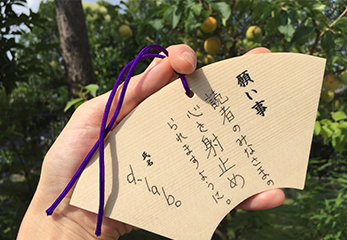 願い事
読者のみなさまの
心を射止め
られますように。
氏名
d-lab。